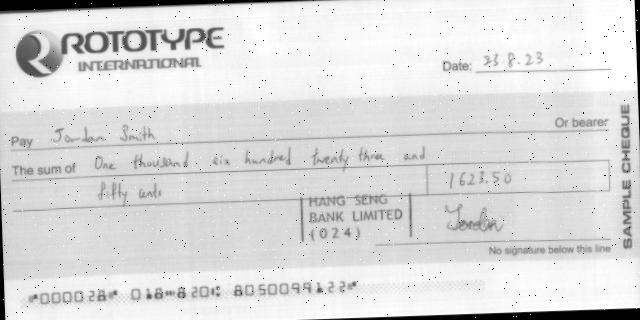 ROTOTYPE
INTERNATIONAL
Date: 23.8.23
Pay Jordan Smith Or bearer
The sum of One thousand six hundred twenty three and
fifty cents
1623.50
HANG SENG
BANK LIMITED
(024)
Jordan
No signature below this line
SAMPLE CHEQUE
⑈000028⑈ 018⑉820⑆ 805009912 2⑈